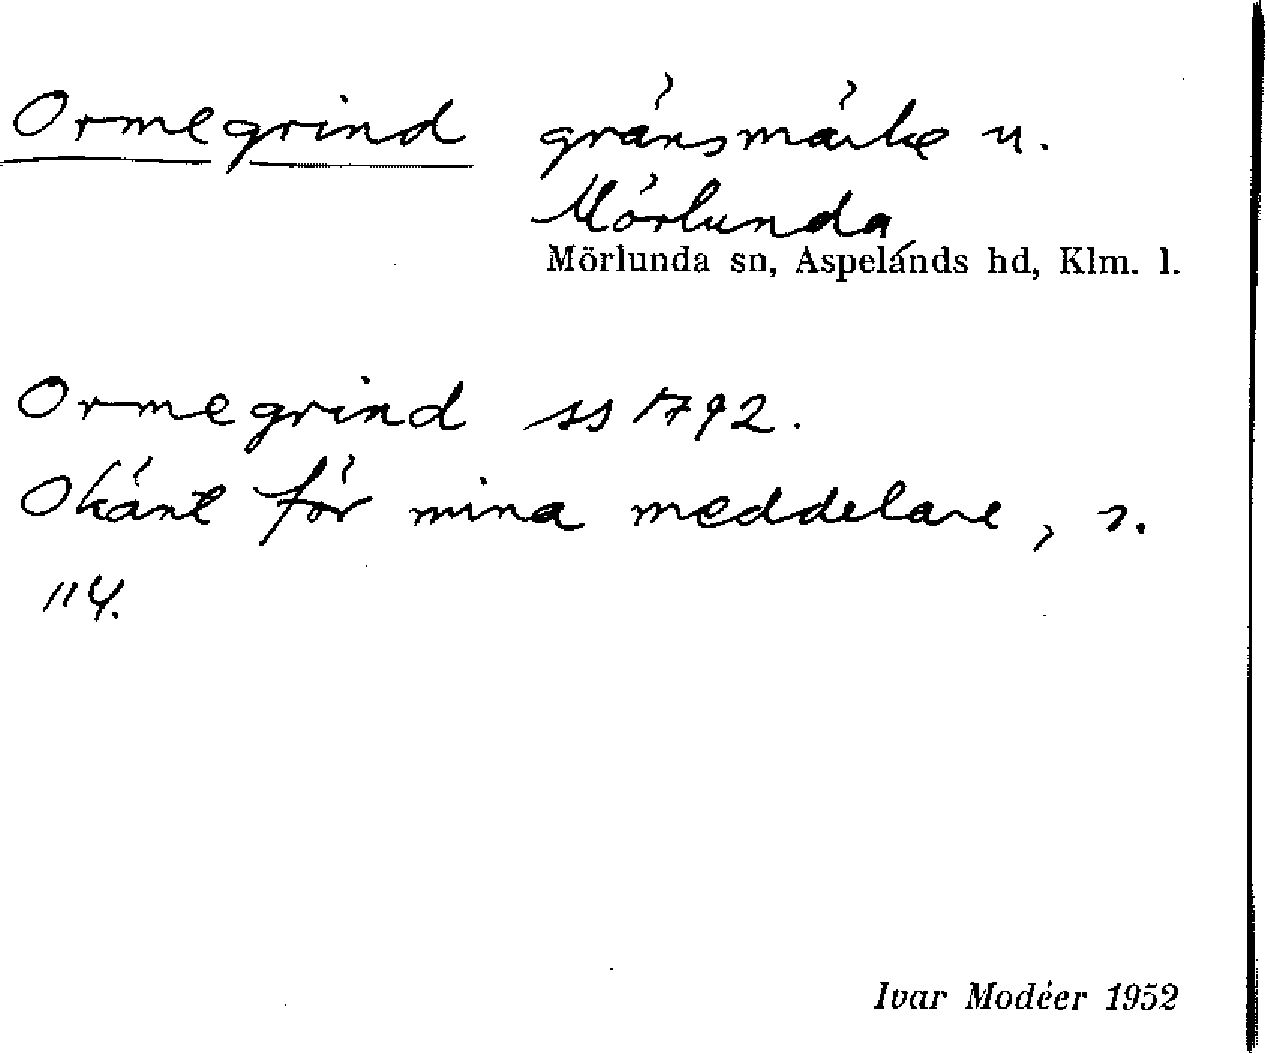 Ormegrind gränsmärke u.
Mörlunda
Mörlunda sn, Aspelands hd, Klm. l.
Ormegrind ss 1792.
Okänt för mina meddelare, s.
114.
Ivar Modéer 1952